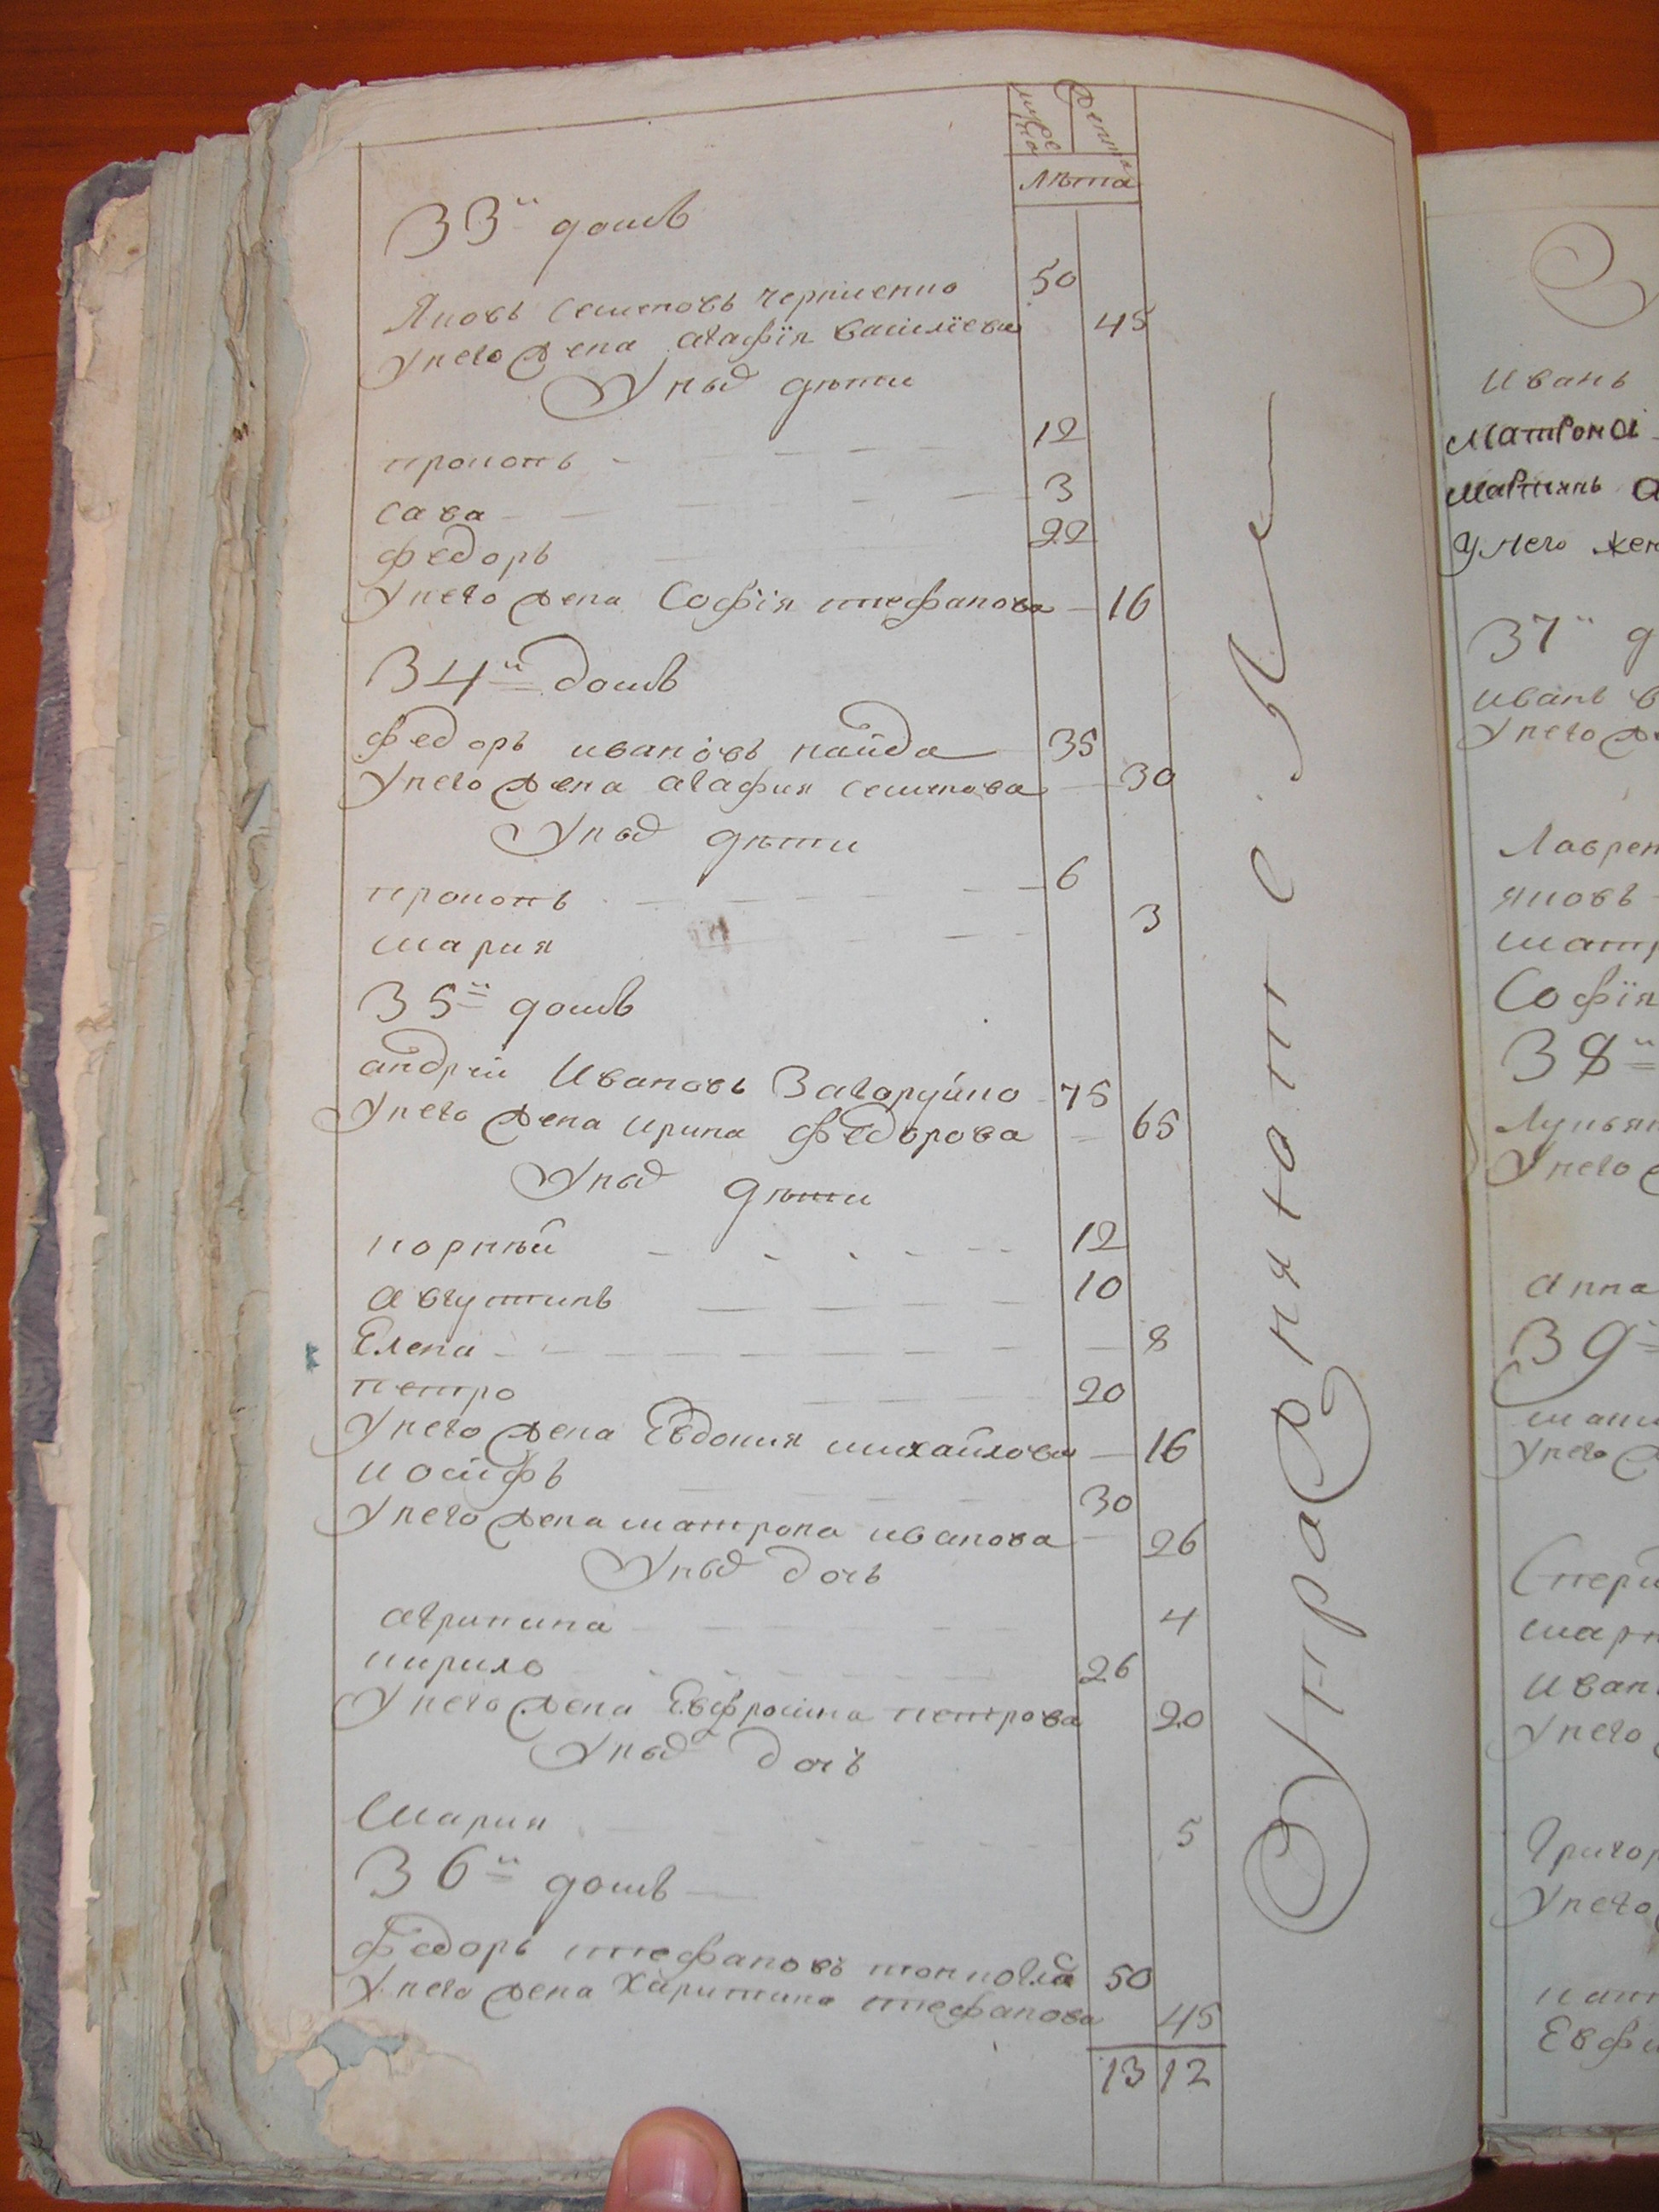 мужеска
женска
лѣта
33й домъ
Яковъ Семеновъ черненко 50
У него жена агафїя Василїева 45
У ныхъ дѣти
прокопъ 12
сава 3
федоръ 22
У него жена Софїя стефанова 16
34й домъ
федоръ ивановъ найда 35
У него жена агафия семенова 30
У ныхъ дѣти
прокопъ 6
мария 3
35й домъ
андрѣй Ивановъ Загоруйко 75
У него жена ирина федорова 65
У ныхъ дѣти
корнѣй 12
августинъ 10
Елена 8
петро 20
У него жена Евдокия михайлова 16
иосифъ 30
У него жена матрона иванова 26
У ныхъ дочь
агрипина 4
кирило 26
У него жена Евфросина петрова 20
У ныхъ дочь
Мария 5
36й домъ
федоръ стефановъ 50
У него жена Харитина стефанова 45
13 12
иванъ
матрона
мартинъ
У него жен
37й д
иванъ в
У него же
Лаврен
яковъ
матр
Софїя
38й
Лукьян
У него
анна
39
У него
мари
иван
У него
Григор
У него